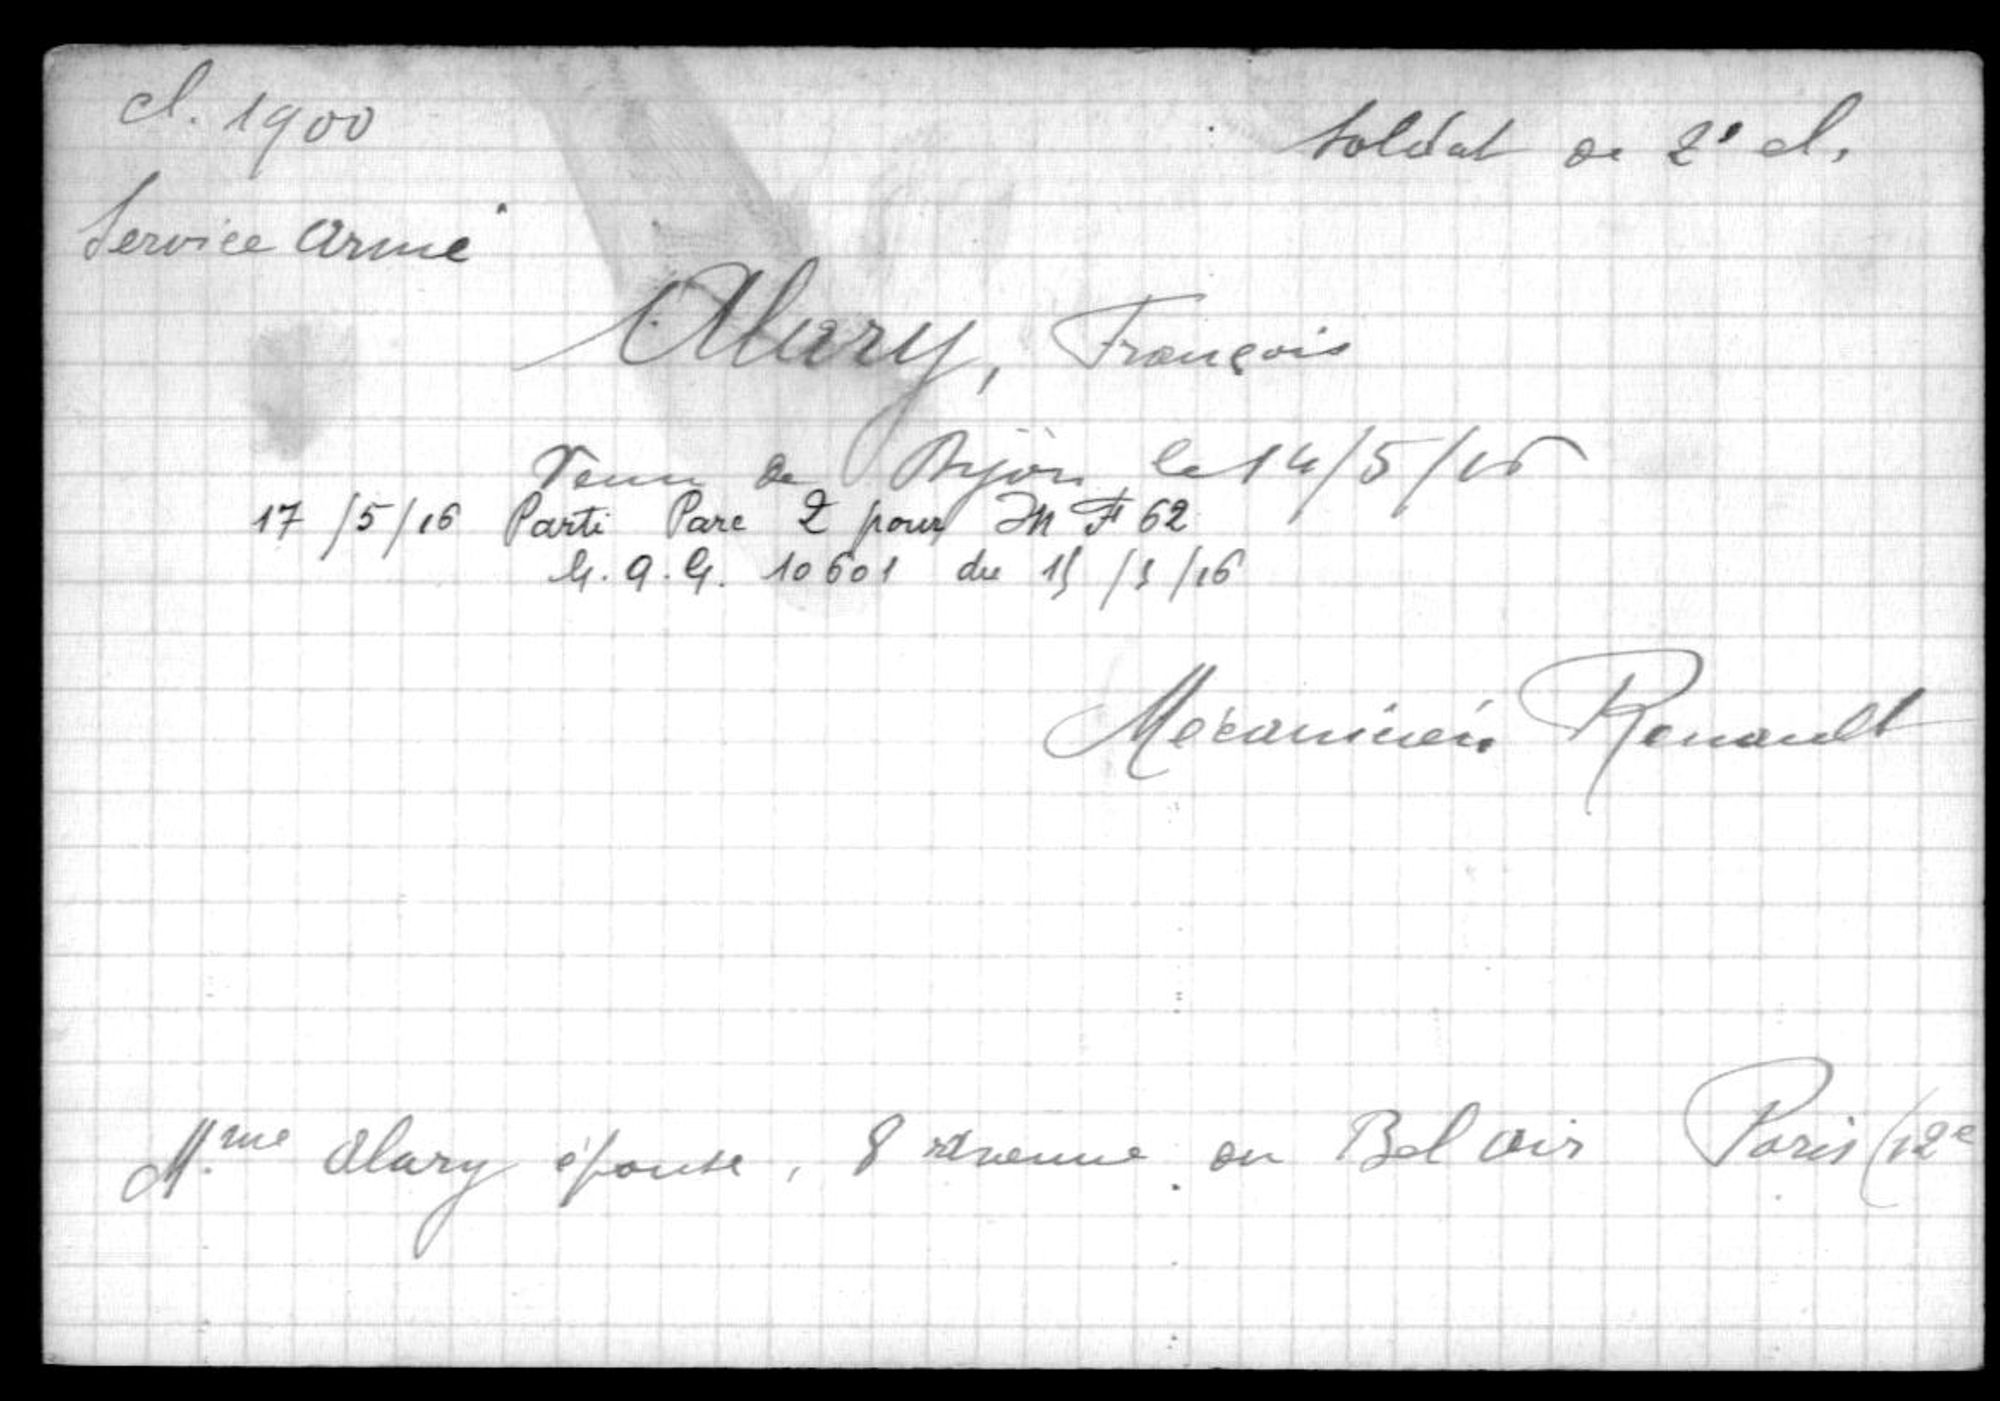 cl. 1900
Soldat de 2e cl.
Service armé
Alary, François
Venu de Dijon le 14/5/16
17/5/16 Parti Parc 2 pour MF 62
G.Q.G. 10601 du 15/5/16
Mécanicien Renault
Mme Alary épouse, 8 avenue du Bel air Paris (12e